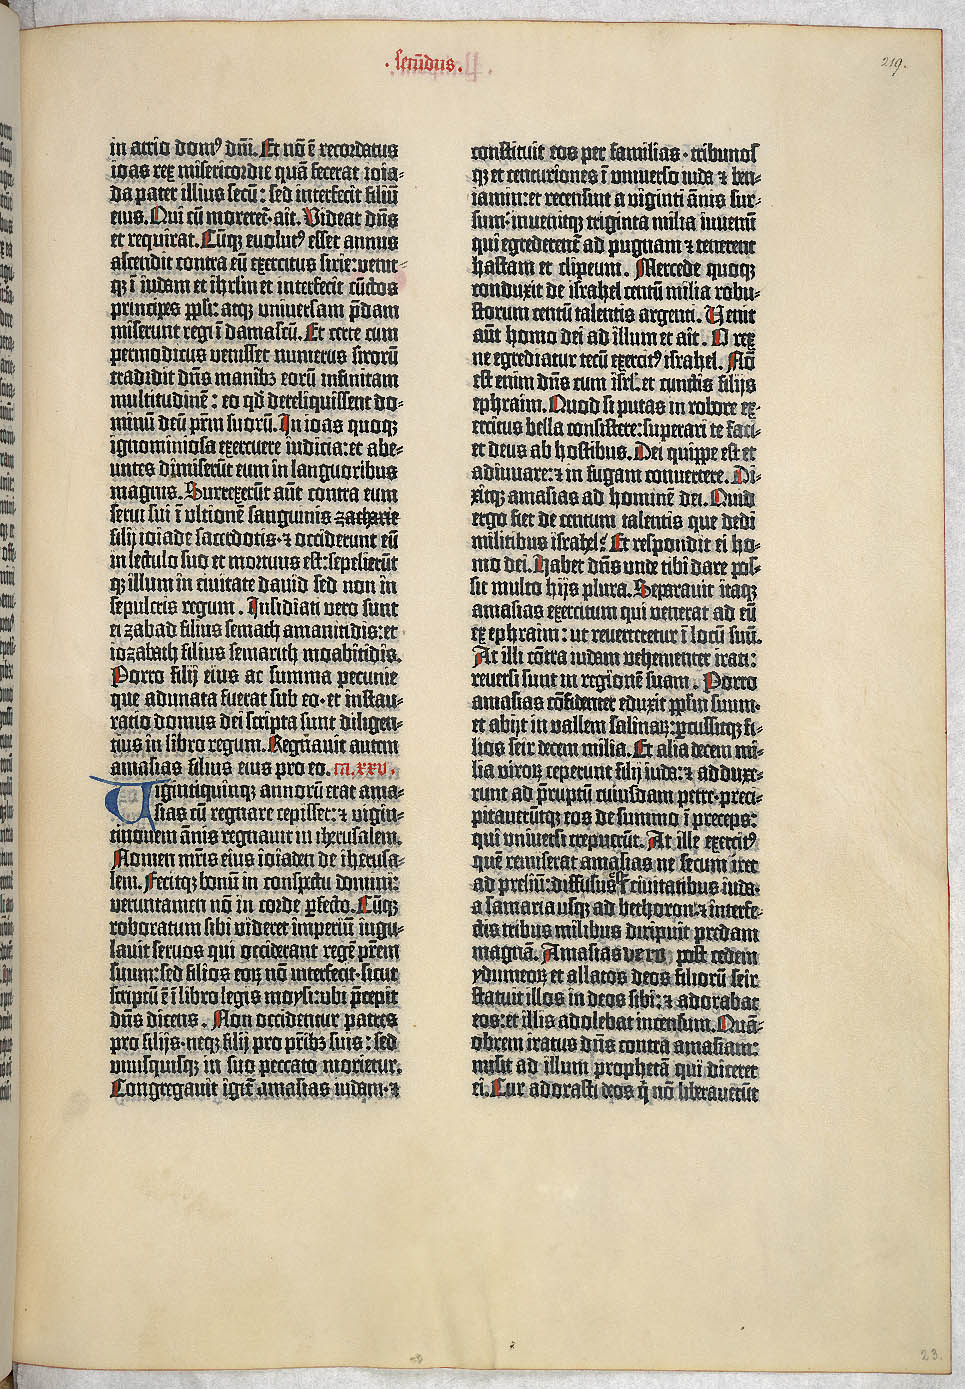 · secūdus.
219.
in atrio domꝰ dn̄i. Et nō ē recordatus
ioas rex misericordie quā fecerat ioia-
da pater illius secū: sed interfecit filiū
eius. Qui cū moreret᷑· ait. Videat dn̄s
et requirat. Cūqꝫ evolutꝰ esset annus
ascendit contra eū exercitus sirie: venit-
qꝫ ī iudam et ihrl̄m et interfecit cūctos
principes ppl̄i: atqꝫ universam p̄dam
miserunt regi ī damascū. Et certe cum
permodicus venisset numerus sirorū
tradidit dn̄s manibꝫ eorū infinitam
multitudinē: eo qd̄ dereliquissent do-
minū deū pr̄m suorū. In ioas quoqꝫ
ignominiosa exercuere iudicia: et abe-
untes dimiserūt eum in languoribus
magnis. Surrexerūt aūt contra eum
servi sui ī ultionē sanguinis zacharie
filij ioiade sacerdotis· ⁊ occiderunt eū
in lectulo suo et mortuus est: sepelierūt
qꝫ illum in civitate david sed non in
sepulcris regum. Insidiati vero sunt
ei zabad filius semath amanitidis: et
iozabath filius semarith moabitidis.
Porro filij eius ac summa pecunie
que adunata fuerat sub eo· et instau-
ratio domus dei scripta sunt diligen-
tius in libro regum. Regnavit autem
amasias filius eius pro eo. ca. xxv.
Vigintiquinqꝫ annorū erat ama-
sias cū regnare cepisset: ⁊ vigin-
tinovem ānis regnavit in iherusalem.
Nomen mr̄is eius ioiaden de iherusa-
lem. Fecitqꝫ bonū in conspectu domini:
veruntamen nō in corde ꝑfecto. Cūqꝫ
roboratum sibi videret imperiū iugu-
lavit servos qui occiderant regē pr̄em
suum: sed filios eoꝝ nō interfecit· sicut
scriptū ē ī libro legis moysi: ubi p̄cepit
dn̄s dicens. Non occidentur patres
pro filijs· neqꝫ filij pro pr̄ibꝫ suis: sed
unusquisqꝫ in suo peccato morietur.
Congregavit igit᷑ amasias iudam· ⁊
constituit eos per familias· tribunos
qꝫ et centuriones ī universo iuda ⁊ ben-
iamin: et recensuit a viginti ānis sur-
sum· invenitqꝫ triginta milia iuvenū
qui egrederent᷑ ad pugnam ⁊ tenerent
hastam et clipeum. Mercede quoqꝫ
conduxit de israhel centū milia robu-
storum centū talentis argenti. Venit
aūt homo dei ad illum et ait. O rex
ne egrediatur tecū exercitꝰ israhel. Nō
est enim dn̄s cum isrl̄· et cunctis filijs
ephraim. Quod si putas in robore ex-
ercitus bella consistere: superari te faci-
et deus ab hostibus. Dei quippe est et
adiuvare: ⁊ in fugam convertere. Di-
xitqꝫ amasias ad hominē dei. Quid
ergo fiet de centum talentis que dedi
militibus israhel? Et respondit ei ho-
mo dei. Habet dn̄s unde tibi dare pos-
sit multo hijs plura. Separavit itaqꝫ
amasias exercitum qui venerat ad eū
ex ephraim: ut reverteretur ī locū suū.
At illi cōtra iudam vehementer irati:
reversi sunt in regionē suam. Porro
amasias cōfidenter eduxit ppl̄m suum·
et abijt in vallem salinaꝝ: ꝑcussitqꝫ fi-
lios seir decem milia. Et alia decem mi-
lia viroꝝ ceperunt filij iuda: ⁊ adduxe-
runt ad p̄ruptū cuiusdam petre· preci-
pitaverūtqꝫ eos de summo ī preceps:
qui universi crepuerūt. At ille exercitꝰ
quē remiserat amasias ne secum iret
ad preliū: diffusus est ī civitatibus iuda·
a samaria usqꝫ ad bethoron: ⁊ interfe-
ctis tribus milibus diripuit predam
magnā. Amasias vero post cedem
ydumeoꝝ et allatos deos filiorū seir
statuit illos in deos sibi: ⁊ adorabat
eos: et illis adolebat incensum. Quā-
obrem iratus dn̄s contra amasiam:
misit ad illum prophetā qui diceret
ei. Cur adorasti deos q̇ nō liberaverūt
23.